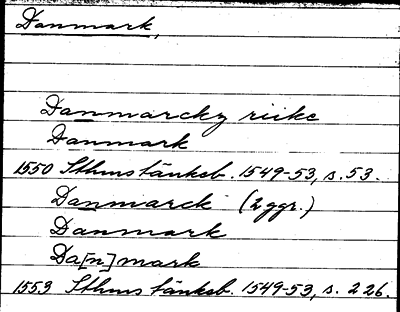 Danmark,
Danmarcky riike
Danmark
1550 Sthms tänkeb. 1549-53, s. 53.
Danmarck (2 ggr.)
Danmark
Da[n]mark
1553 Sthms tänkeb. 1549-53, s. 226.